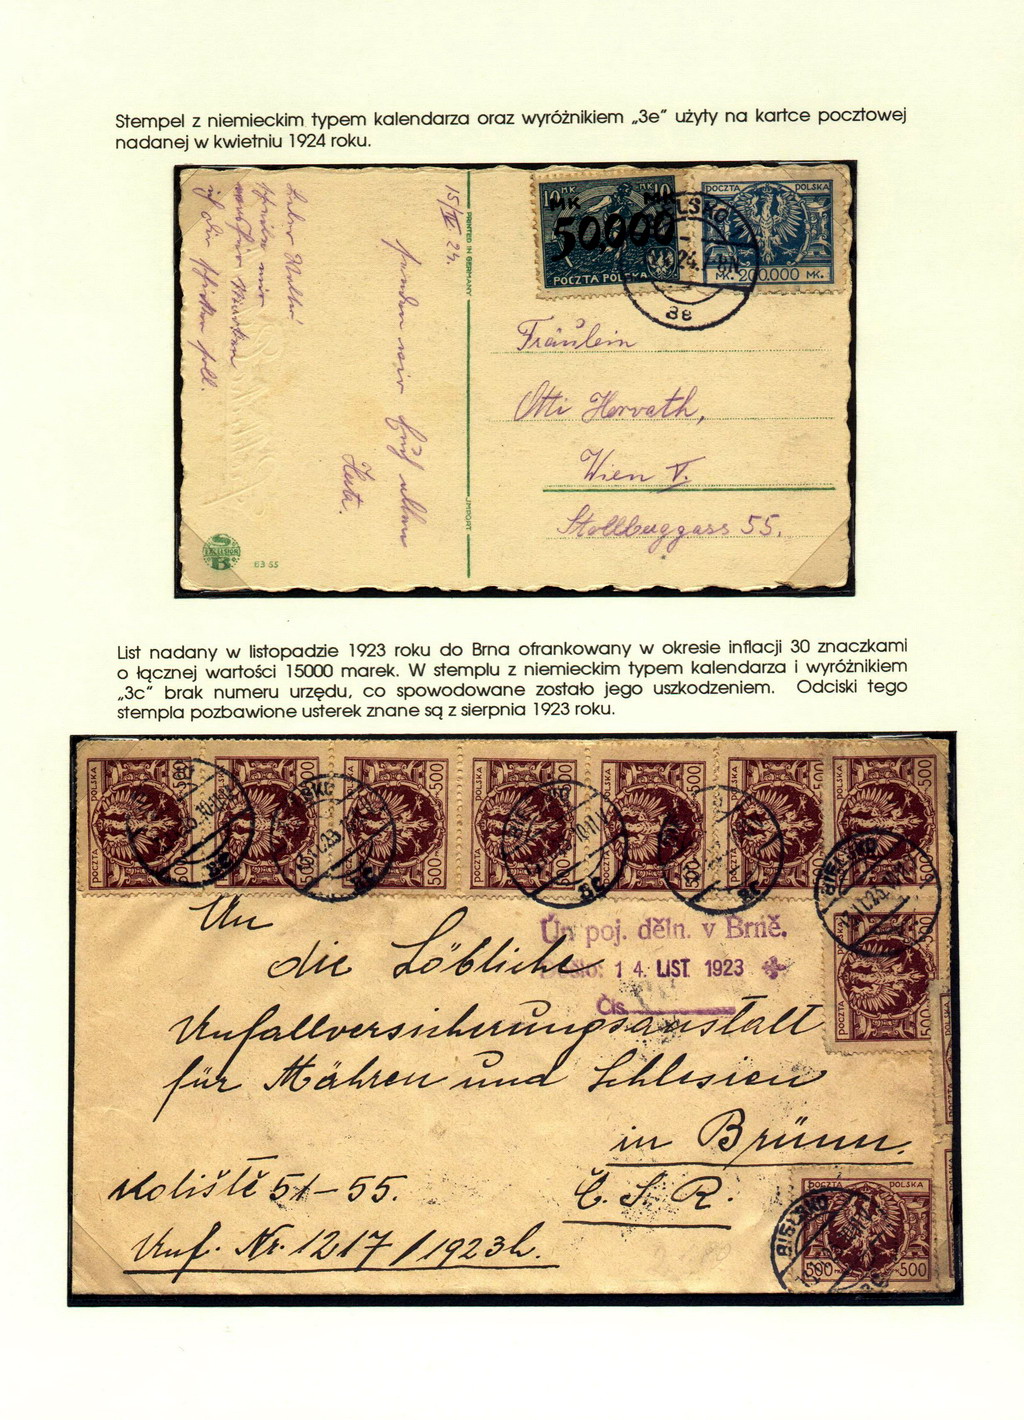 Stempel z niemieckim typem kalendarza oraz wyróżnikiem „3e" użyty na kartce pocztowej
nadanej w kwietniu 1924 roku.
10 MK MK 10
MK
50000
POCZTA POLSKA
POCZTA POLSKA
MK. 200,000 MK.
24.
8e
15/IV 24.
Herta.
PRINTED IN GERMANY
IMPORT
63 55
Fräulein
Otti Horvath,
Wien V.
55.
List nadany w listopadzie 1923 roku do Brna ofrankowany w okresie inflacji 30 znaczkami
o łącznej wartości 15000 marek. W stemplu z niemieckim typem kalendarza i wyróżnikiem
„3c" brak numeru urzędu, co spowodowane zostało jego uszkodzeniem. Odciski tego
stempla pozbawione usterek znane są z sierpnia 1923 roku.
POCZTA POLSKA
500 500
BIELSKO
8c
An
die Löbliche
Unfallversicherungsanstalt
für Mähren und Schlesien
in Brünn.
Č. S. R.
Koliště 51-55.
Unf. Nr. 1217/1923h.
Úr. poj. děln. v Brně.
Došlo: 14. LIST. 1923
Čís.
BIELSKO
POCZTA POLSKA
500 500